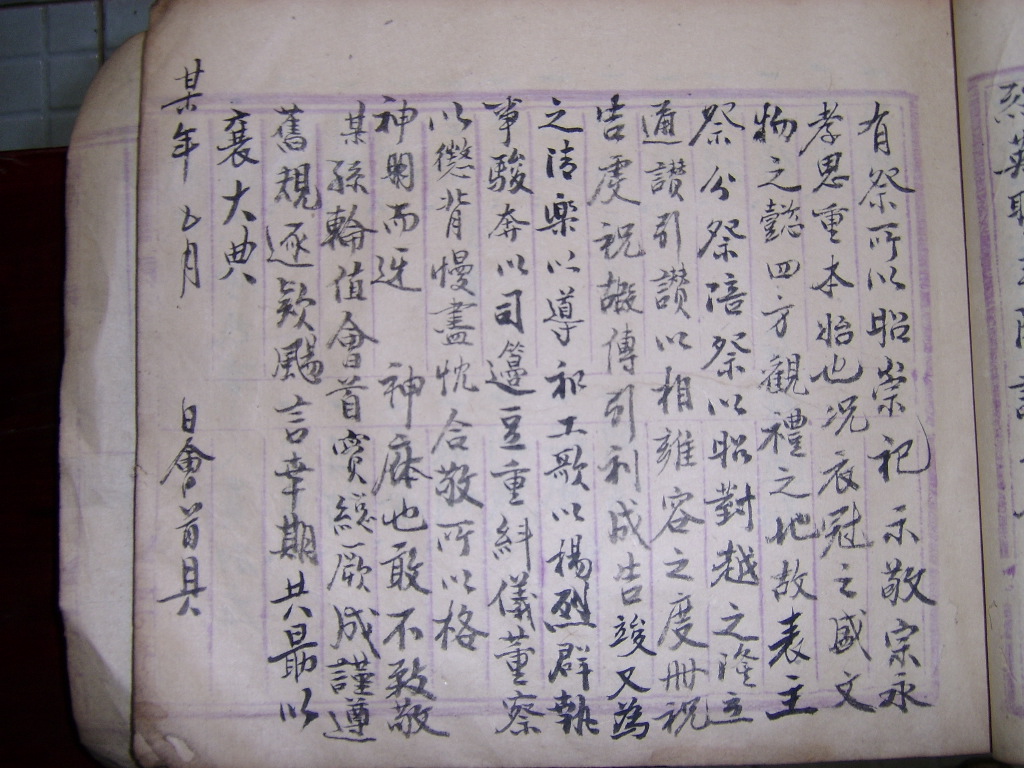 烈英
有祭所以昭崇祀示敬宗永
孝思重本始也况衣冠之盛文
物之懿四方觀禮之地故表主
祭分祭陪祭以昭對越之隆立
通讃引讃以相雍容之度冊祝
告虔祝嘏傳引利成告竣又為
之清樂以導和工歌以揚烈群執
事駿奔以司籩豆重糾儀董察
以懲背慢盡忱合敬所以格
神明而迓 神庥也敢不致敬
某孫輪值會首實綜厥成謹遵
舊規逐欵颺言幸期共勗以
襄大典
某年 乙月 日會首具